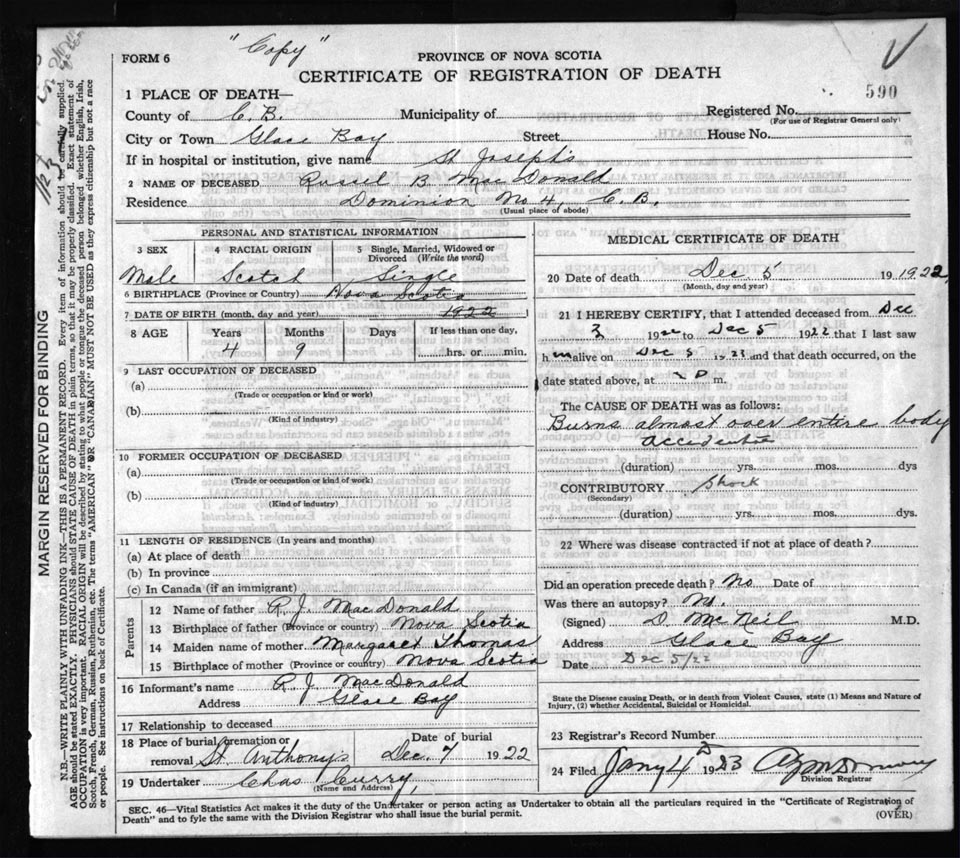 "Copy"
FORM 6
PROVINCE OF NOVA SCOTIA
CERTIFICATE OF REGISTRATION OF DEATH
590
1 PLACE OF DEATH—
County of C. B. Municipality of Registered No.
(For use of Registrar General only)
City or Town Glace Bay Street House No.
If in hospital or institution, give name St Joseph's
2 NAME OF DECEASED Russel B. MacDonald
Residence Dominion No 4, C. B.
(Usual place of abode)
PERSONAL AND STATISTICAL INFORMATION
3 SEX 4 RACIAL ORIGIN 5 Single, Married, Widowed or Divorced (Write the word)
Male Scotch Single
6 BIRTHPLACE (Province or Country) Nova Scotia
7 DATE OF BIRTH (month, day and year) 1922
8 AGE Years Months Days If less than one day,
4 9 hrs. or min.
9 LAST OCCUPATION OF DECEASED
(a)
(Trade or occupation or kind or work)
(b)
(Kind of industry)
10 FORMER OCCUPATION OF DECEASED
(a)
(Trade or occupation or kind or work)
(b)
(Kind of industry)
11 LENGTH OF RESIDENCE (In years and months)
(a) At place of death
(b) In province
(c) In Canada (if an immigrant)
Parents
12 Name of father R. J. MacDonald
13 Birthplace of father (Province or country) Nova Scotia
14 Maiden name of mother Margaret Thomas
15 Birthplace of mother (Province or country) Nova Scotia
16 Informant's name R. J. MacDonald
Address Glace Bay
17 Relationship to deceased
18 Place of burial, cremation or removal St. Anthony's Date of burial Dec. 7 1922
19 Undertaker Chas Curry,
(Name and Address)
MEDICAL CERTIFICATE OF DEATH
20 Date of death Dec 5 19 1922
(Month, day and year)
21 I HEREBY CERTIFY, that I attended deceased from Dec
3 19 22 to Dec 5 1922 that I last saw
him alive on Dec 5 19 and that death occurred, on the
date stated above, at P m.
The CAUSE OF DEATH was as follows:
Burns almost over entire body
(duration) yrs. mos. dys
CONTRIBUTORY Shock
(Secondary)
(duration) yrs. mos. dys.
22 Where was disease contracted if not at place of death?
Did an operation precede death? No Date of
Was there an autopsy? No.
(Signed) D. McNeil M.D.
Address Glace Bay
Date Dec 5/22
State the Disease causing Death, or in death from Violent Causes, state (1) Means and Nature of
Injury, (2) whether Accidental, Suicidal or Homicidal.
23 Registrar's Record Number
24 Filed Jany 4 1923
Division Registrar
SEC. 46—Vital Statistics Act makes it the duty of the Undertaker or person acting as Undertaker to obtain all the particulars required in the "Certificate of Registration of
Death" and to fyle the same with the Division Registrar who shall issue the burial permit.
(OVER)
MARGIN RESERVED FOR BINDING
N.B.—WRITE PLAINLY WITH UNFADING INK—THIS IS A PERMANENT RECORD. Every item of information should be carefully supplied.
AGE should be stated EXACTLY. PHYSICIANS should STATE CAUSE OF DEATH in plain terms, so that it may be properly classified. Exact statement of
OCCUPATION is very important. RACIAL ORIGIN will be described by stating to what people or tongue the deceased person belonged whether English, Irish,
Scotch, French, German, Russian, Ruthenian, etc. The terms "AMERICAN" OR "CANADIAN" MUST NOT BE USED as they express citizenship but not a race
or people. See instructions on back of Certificate.